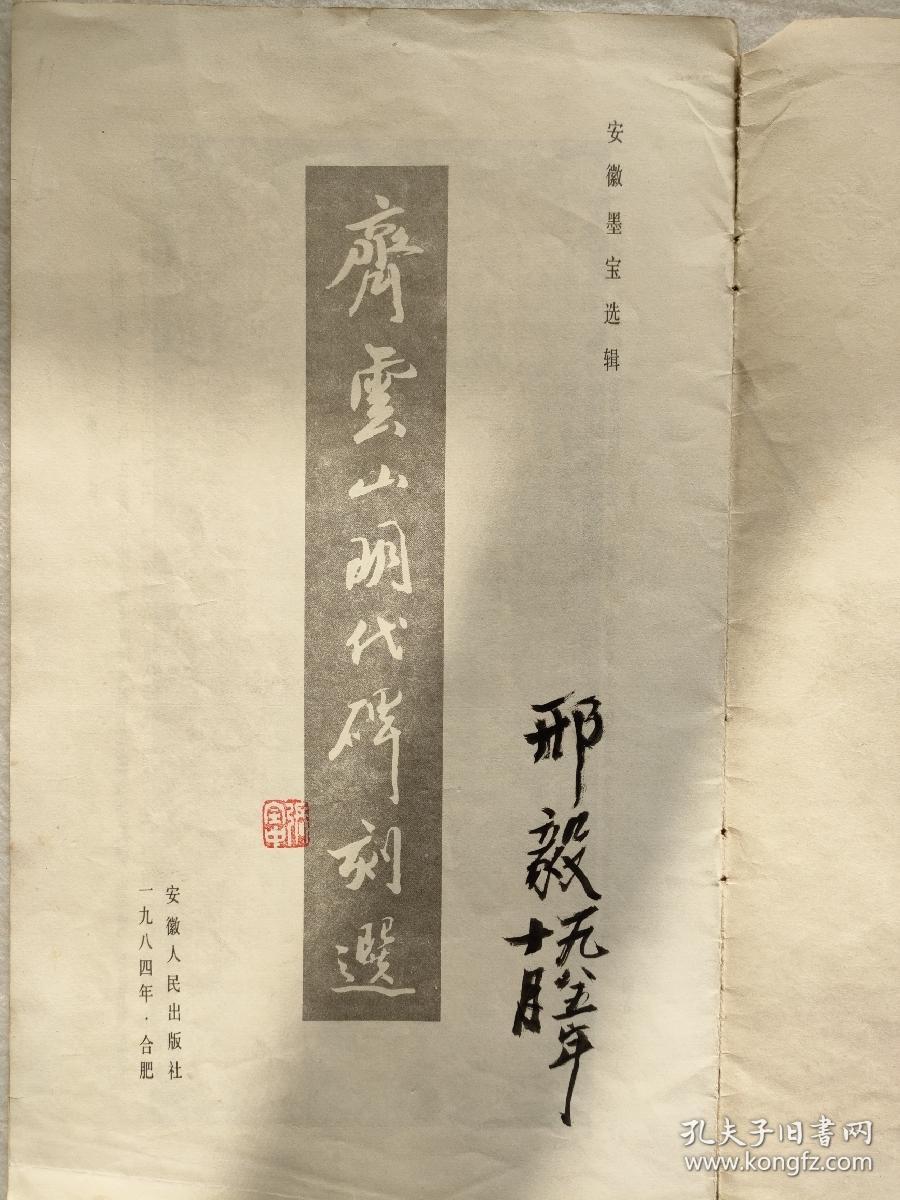 安徽墨宝选辑
齊雲山明代碑刻選
安徽人民出版社
一九八四年·合肥
邢毅
一九八五年
十月
孔夫子旧書网
www.kongfz.com